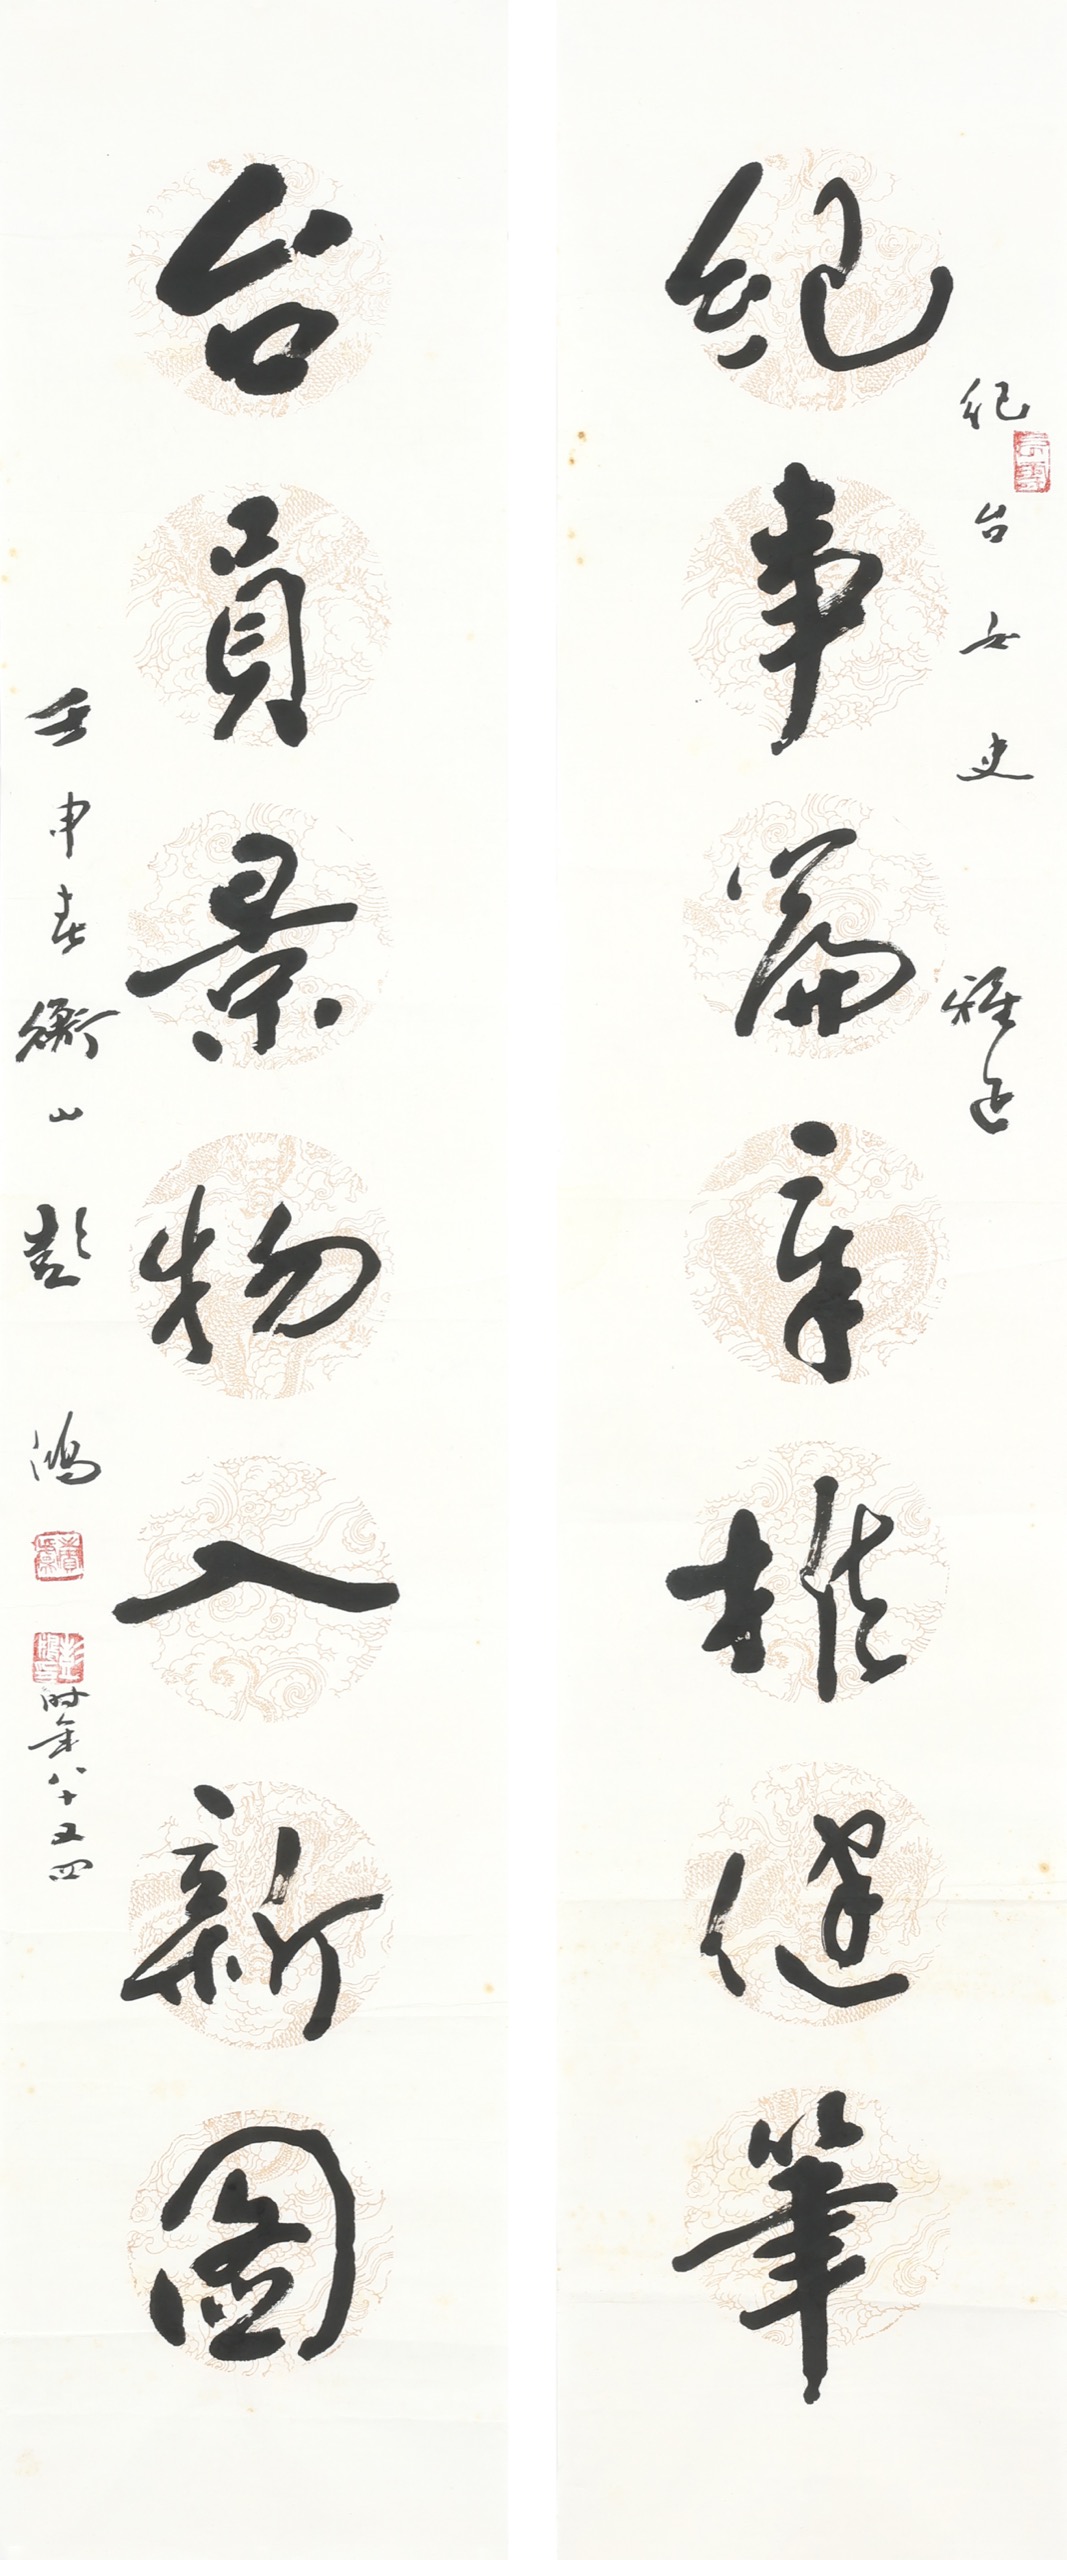 紀事篇章推健筆
紀台女史
雅正
台員景物入新圖
壬申春衡山彭鴻
時年八十又四